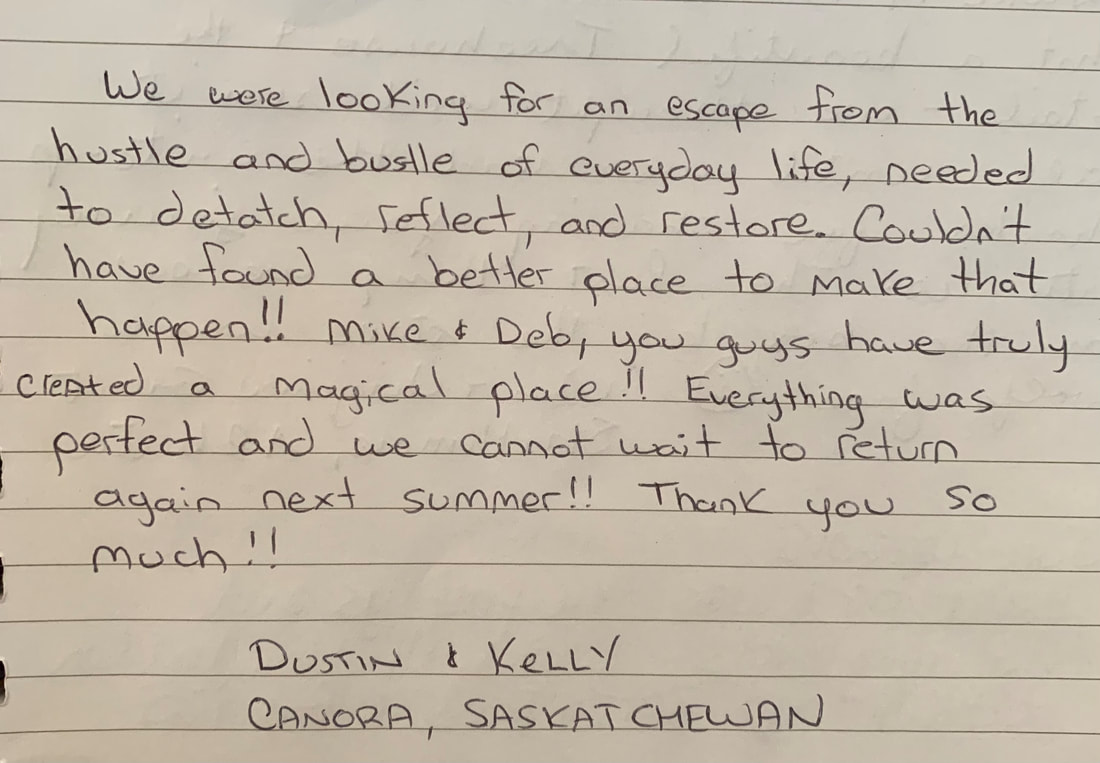 We were looking for an escape from the
hustle and bustle of everyday life, needed
to detatch, reflect, and restore. Couldn't
have found a better place to make that
happen!! Mike & Deb, you guys have truly
created a magical place!! Everything was
perfect and we cannot wait to return
again next summer!! Thank you so
much!!
DUSTIN & KELLY
CANORA, SASKATCHEWAN